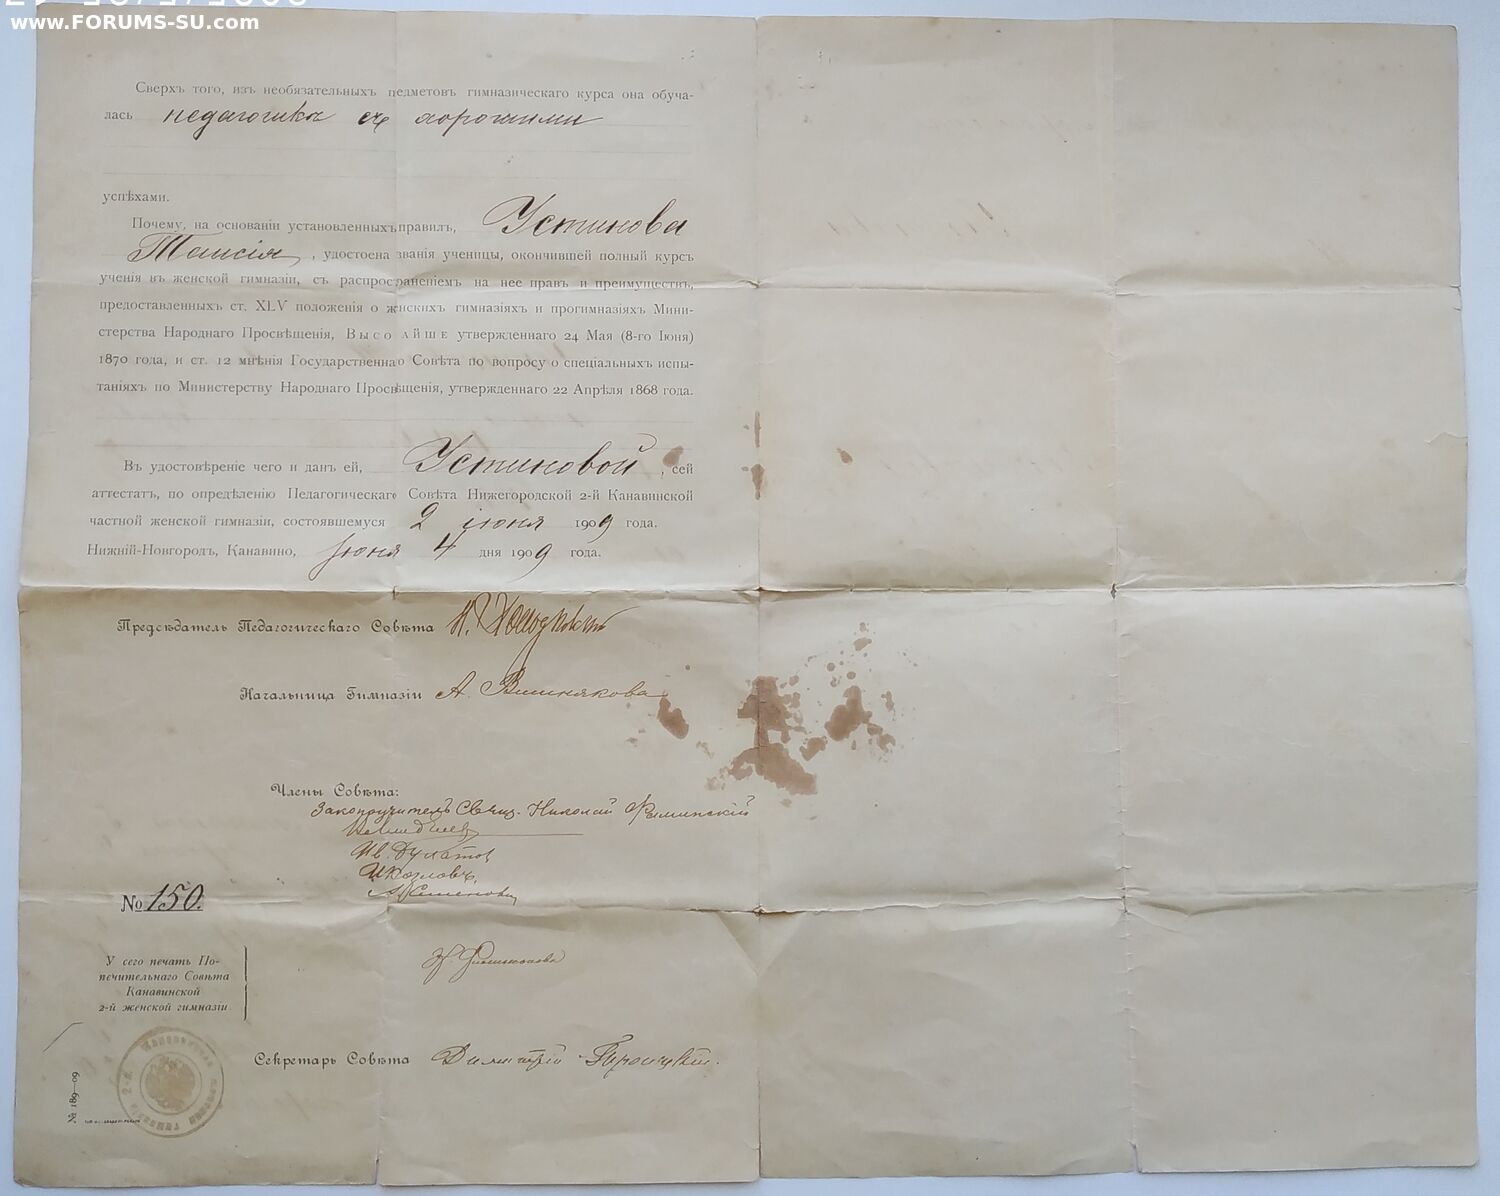 www.FORUMS-SU.com
Сверхъ того, изъ необязательныхъ педметовъ гимназическаго курса она обуча-
лась педагогикѣ съ хорошими
успѣхами.
Почему, на основаніи установленныхъ правилъ, Устинова
Таисія, удостоена званія ученицы, окончившей полный курсъ
ученія въ женской гимназіи, съ распространеніемъ на нее правъ и преимуществъ,
предоставленныхъ ст. XLV положенія о женскихъ гимназіяхъ и прогимназіяхъ Мини-
стерства Народнаго Просвѣщенія, Высо айше утвержденнаго 24 Мая (8-го Іюня)
1870 года, и ст. 12 мнѣнія Государственнаго Совѣта по вопросу о спеціальныхъ испы-
таніяхъ по Министерству Народнаго Просвѣщенія, утвержденнаго 22 Апрѣля 1868 года.
Въ удостовѣреніе чего и данъ ей, Устиновой, сей
аттестатъ, по опредѣленію Педагогическаго Совѣта Нижегородской 2-й Канавинской
частной женской гимназіи, состоявшемуся 2 іюня 1909 года.
Нижній-Новгородъ, Канавино, Іюня 4 дня 1909 года.
Предсѣдатель Педагогическаго Совѣта
Начальница Гимназіи А. Вишнякова
Члены Совѣта:
Законоучитель Свящ. Николай
Ив. Булатов
И. Козловъ.
№ 150.
У сего печать По-
печительнаго Совѣта
Канавинской
2-й женской гимназіи
Секретарь Совѣта Димитрій Троицкій.
№ 189—09